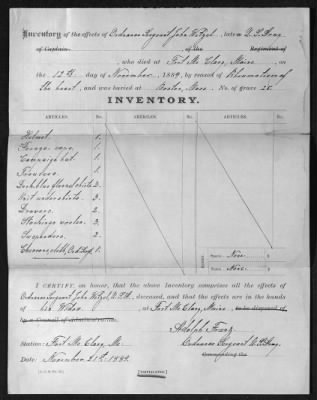 Inventory of the effects of Ordnance Sergeant John Witzel, late U.S. Army
of Captain of the Regiment of
, who died at Fort Mc Clary, Maine, on
the 12th day of November, 1889, by reason of Rheumatism of
the heart, and was buried at No. of grave
INVENTORY.
ARTICLES. No. ARTICLES. No. ARTICLES. No.
Helmet 1.
Forage caps 1.
Campaign hat 1.
Trousers 2.
Dark blue flannel shirts 2.
Knit undershirts 2.
Drawers 2.
Stockings woolen 3.
Suspenders 2.
Chevrons, cloth, Ord. Sergt. 1.
None
None
I CERTIFY, on honor, that the above Inventory comprises all the effects of
Ordnance Sergeant John Witzel, U.S.A., deceased, and that the effects are in the hands
of his Widow, at Fort Mc Clary, Maine, to be disposed of
by a Council of Administration.
Adolph Franz
Ordnance Sergeant U.S. Army
Commanding the
Station: Fort Mc Clary, Me.
Date: November 21st 1889.